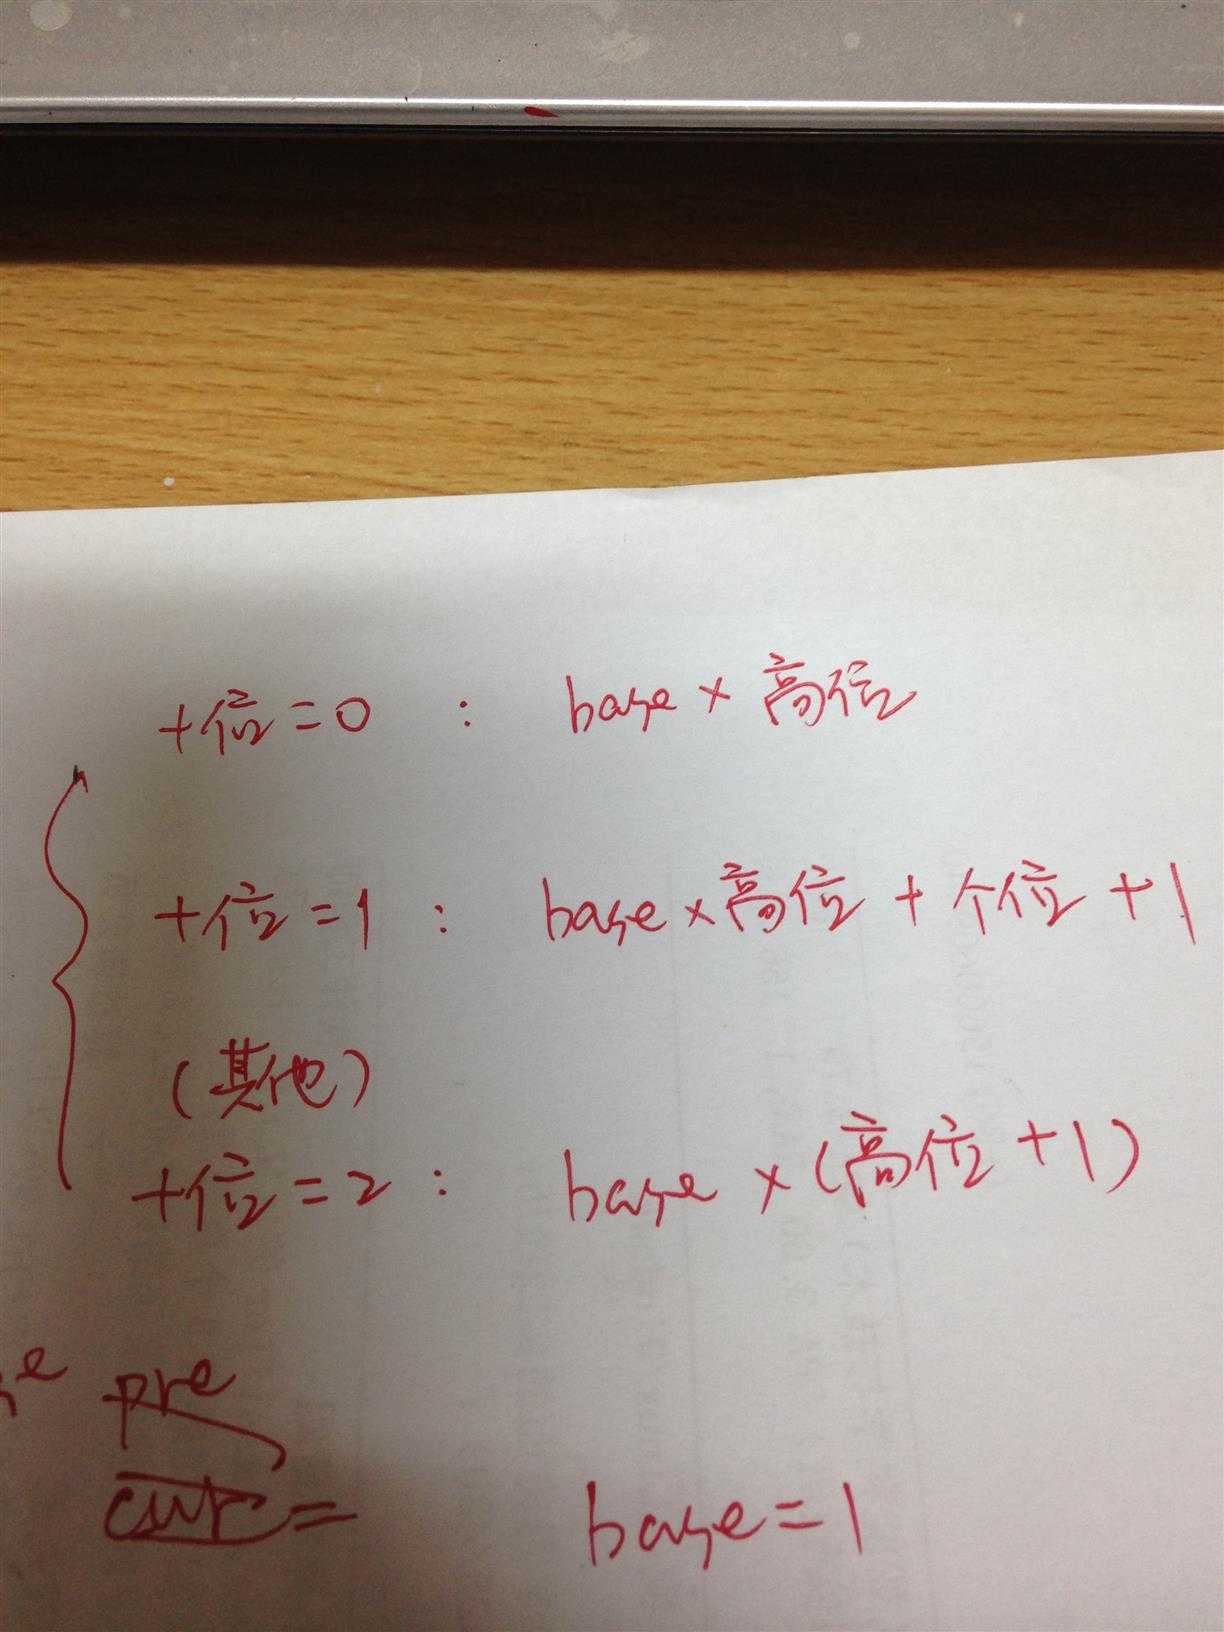 十位=0 : base × 高位
十位=1 : base × 高位 + 个位 + 1
(其他)
十位=2 : base × (高位 + 1)
pre
curr= base=1